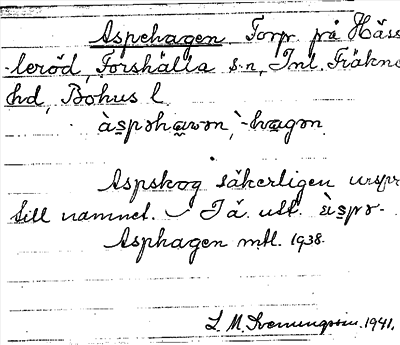 Aspehagen. Torp. på Häss
-leröd, Forshälla s:n, Inl. Fräkne
hd, Bohus l.
àspəhavən, -hagən.
Aspskog säkerligen urspr
till namnet. – Tä. utt. àspə-
Asphagen mtl. 1938.
L. M. Svenungsson. 1941.